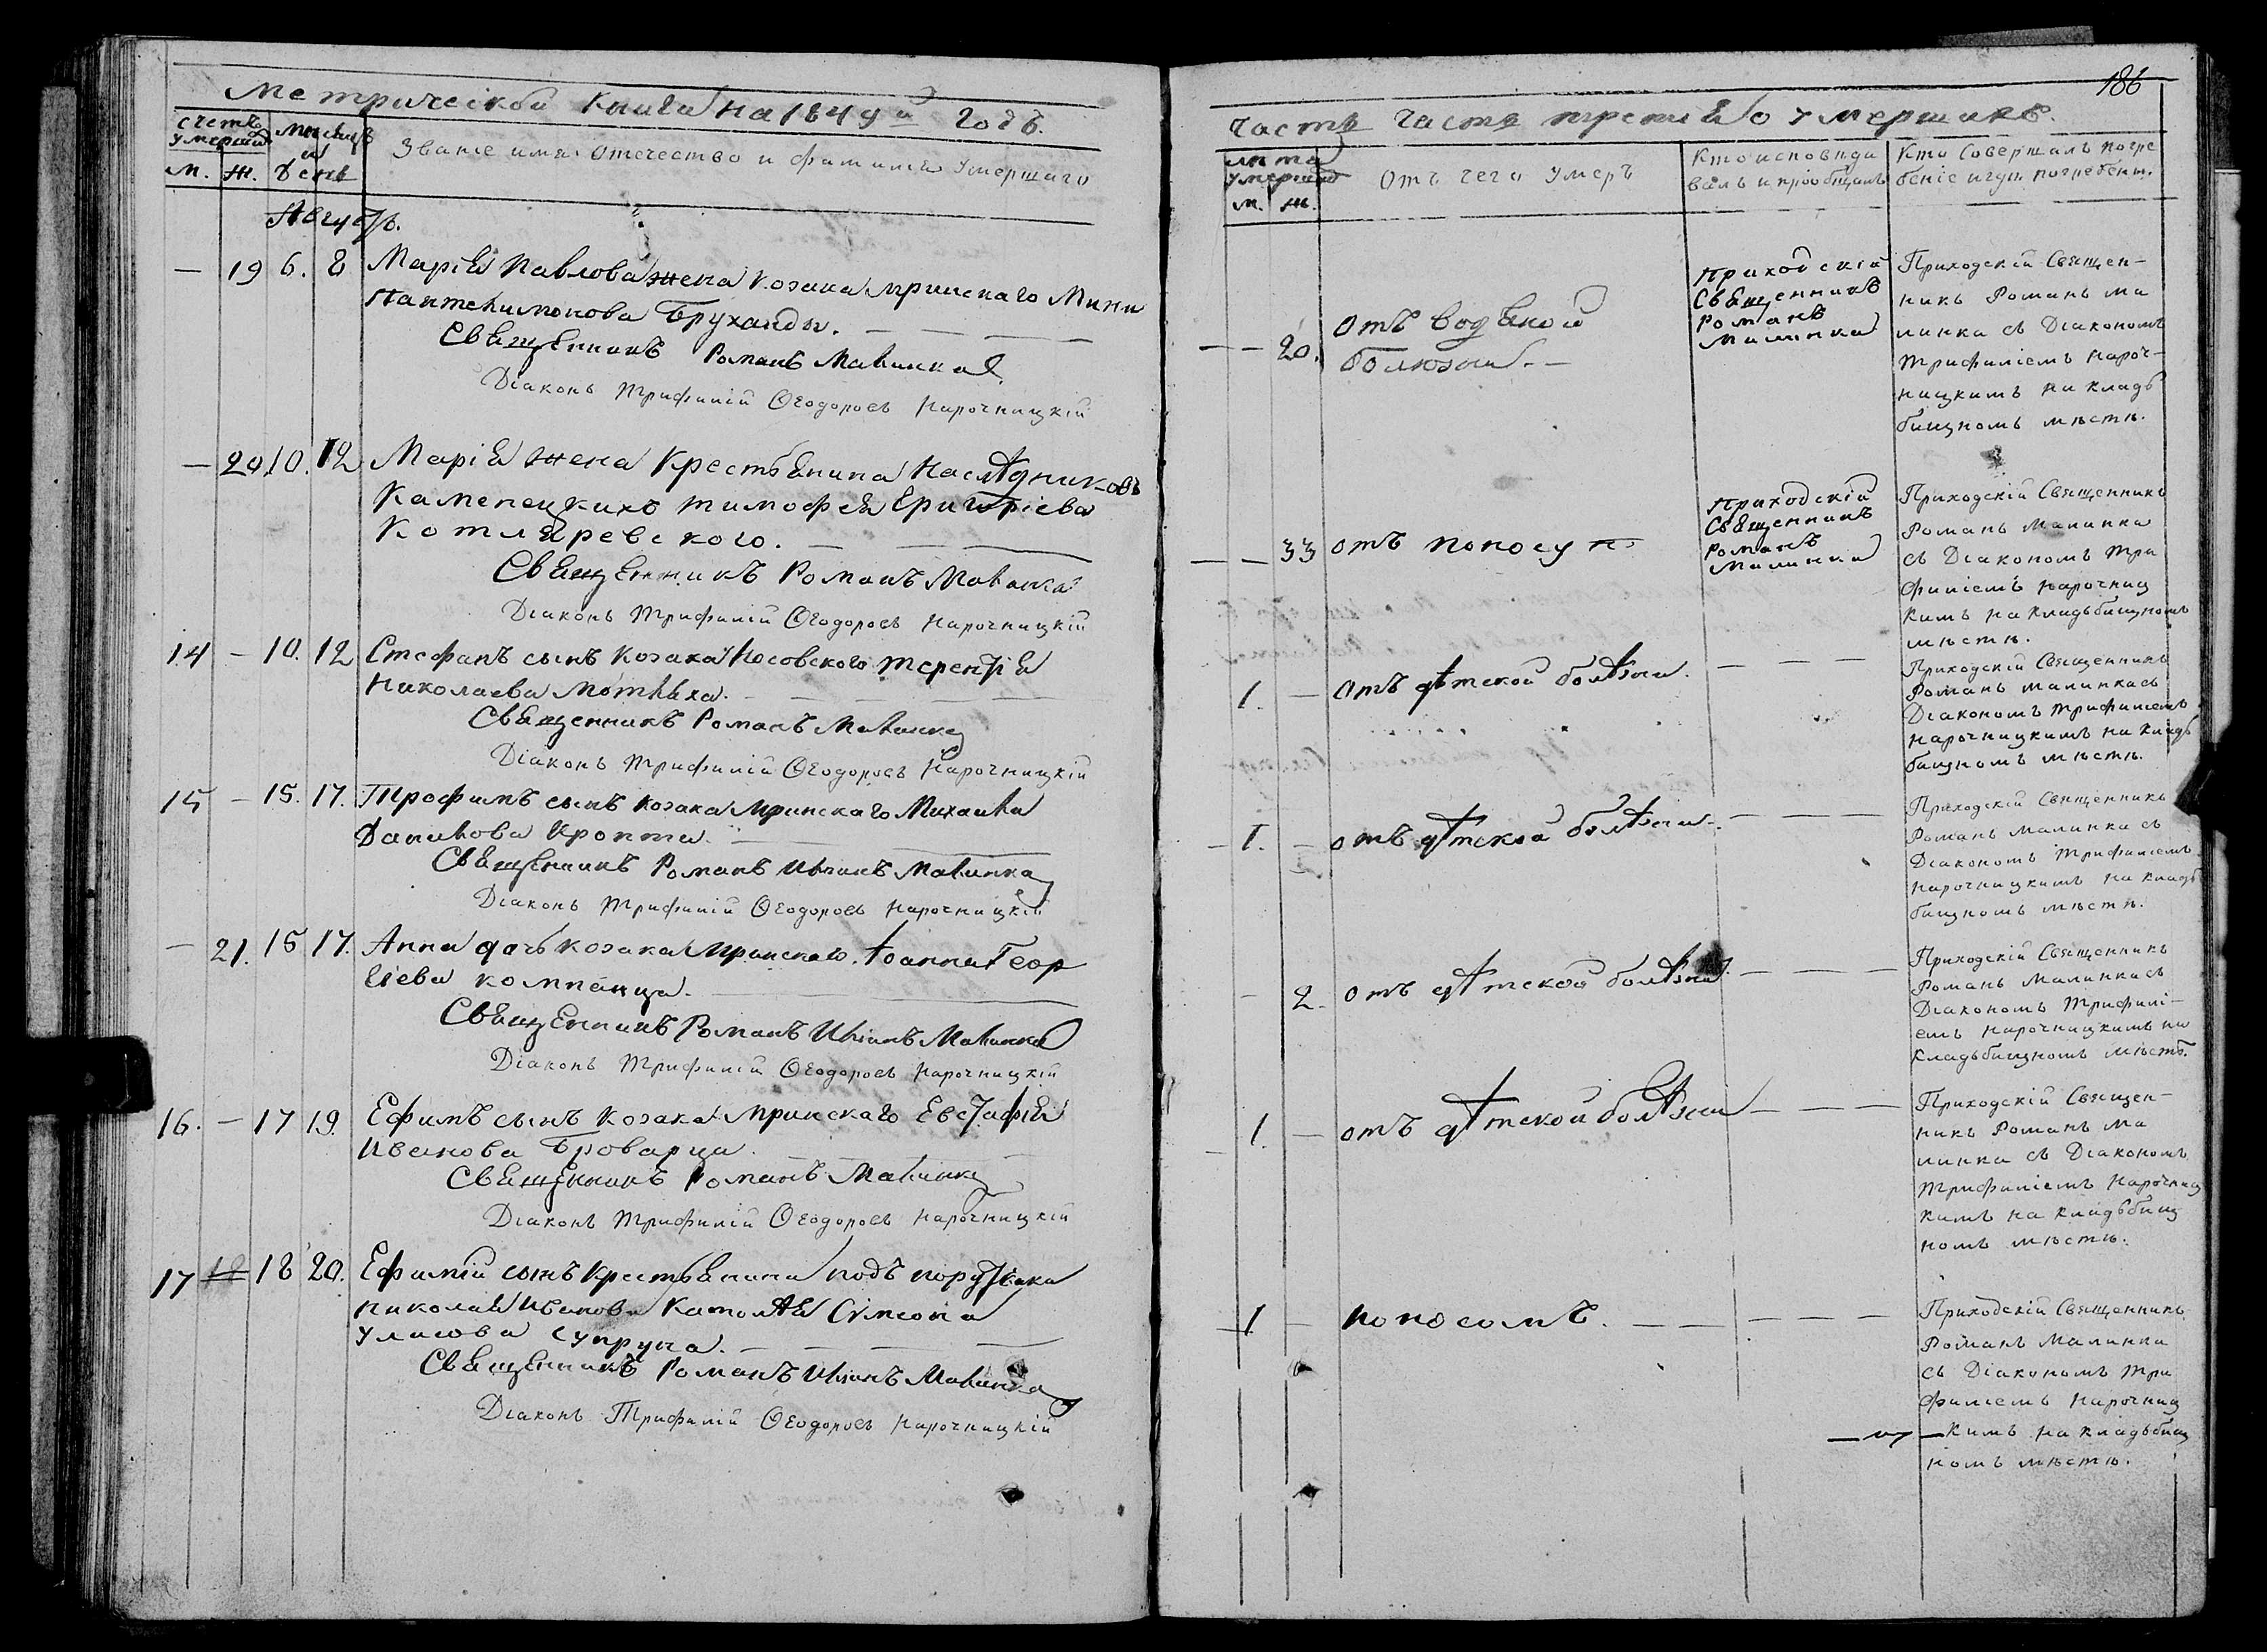 Метрической книги на 1849й годъ.
счетъ умершихъ
м. ж.
Мѣсяцъ и день
Званіе имя отечество и фамилія умершаго
Августъ.
— 19 6. 8 Марія Павлова жена козака мринскаго Мины
Пантелимонова Бруханды. — — —
Священникъ Романъ Малинка
Діаконъ Трифилій Ѳеодоровъ Нарочницкій
— 20 10. 12 Марія жена Крестьянина Наслѣдниковъ
Каменецкихъ Тимофея Григоріева
Котляревского. — — —
Священникъ Романъ Малинка
Діаконъ Трифилій Ѳеодоровъ Нарочницкій
14 — 10. 12 Стефанъ сынъ козака Носовского Терентія
Николаева
Священникъ Романъ Малинка
Діаконъ Трифилій Ѳеодоровъ Нарочницкій
15 — 15. 17. Трофимъ сынъ козака мринскаго Михаила
Данилова Кропты. —
Священникъ Романъ Иліинъ Малинка
Діаконъ Трифилій Ѳеодоровъ Нарочницкій
— 21. 15 17. Анна дочь козака мринскаго Іоанна Геор
гіева компанца.
Священникъ Романъ Иліинъ Малинка
Діаконъ Трифилій Ѳеодоровъ Нарочницкій
16. — 17 19. Ефимъ сынъ козака мринскаго Евстафія
Иванова Броварца.
Священникъ Романъ Малинка
Діаконъ Трифилій Ѳеодоровъ Нарочницкій
17 18 20. Ефимій сынъ Крестьянина подъ порутчика
Николая Иванова Сѵмеона
Супруна. — — —
Священникъ Романъ Иліинъ Малинка
Діаконъ Трифилій Ѳеодоровъ Нарочницкій
186
Часть Часть третія о умершихъ.
лѣта умершихъ
м. ж.
Отъ чего умеръ
Кто исповѣды
валъ и пріобщалъ
Кто совершалъ погре
беніе и гдѣ погребены.
— — 20. отъ водяной
болюзни. —
приходскій
Священникъ
Романъ
Малинка
Приходскій Священ-
никъ Романъ Ма
линка съ Діакономъ
Трифиліемъ Нароч-
ницкимъ на кладъ
бищномъ мѣстѣ.
— — 33 отъ поносу
приходскій
Священникъ
Романъ
Малинка
Приходскій Священникъ
Романъ Малинка
съ Діакономъ Три
филіемъ Нарочниц
кимъ на кладьбищномъ
мѣстѣ.
1. — отъ дѣтской болѣзни. — — —
Приходскій Священникъ
Романъ Малинка съ
Діакономъ Трифиліемъ
Нарочницкимъ на кладь
бищномъ мѣстѣ.
— 1. — отъ дѣтской болѣзни. — — —
Приходскій Священникъ
Романъ Малинка съ
Діакономъ Трифиліемъ
Нарочницкимъ на кладь
бищномъ мѣстѣ.
— 2. отъ дѣтской болѣзни. — — —
Приходскій Священникъ
Романъ Малинка съ
Діакономъ Трифилі-
емъ Нарочницкимъ на
кладьбищномъ мѣстѣ.
— 1. — отъ дѣтской болѣзни — — —
Приходскій Священ-
никъ Романъ Ма
линка съ Діакономъ
Трифиліемъ Нарочниц
кимъ на кладьбищ
номъ мѣстѣ.
1 — поносомъ. — — — — —
Приходскій Священникъ
Романъ Малинка
съ Діакономъ Три
филіемъ Нарочниц
кимъ на кладьбищ
номъ мѣстѣ.